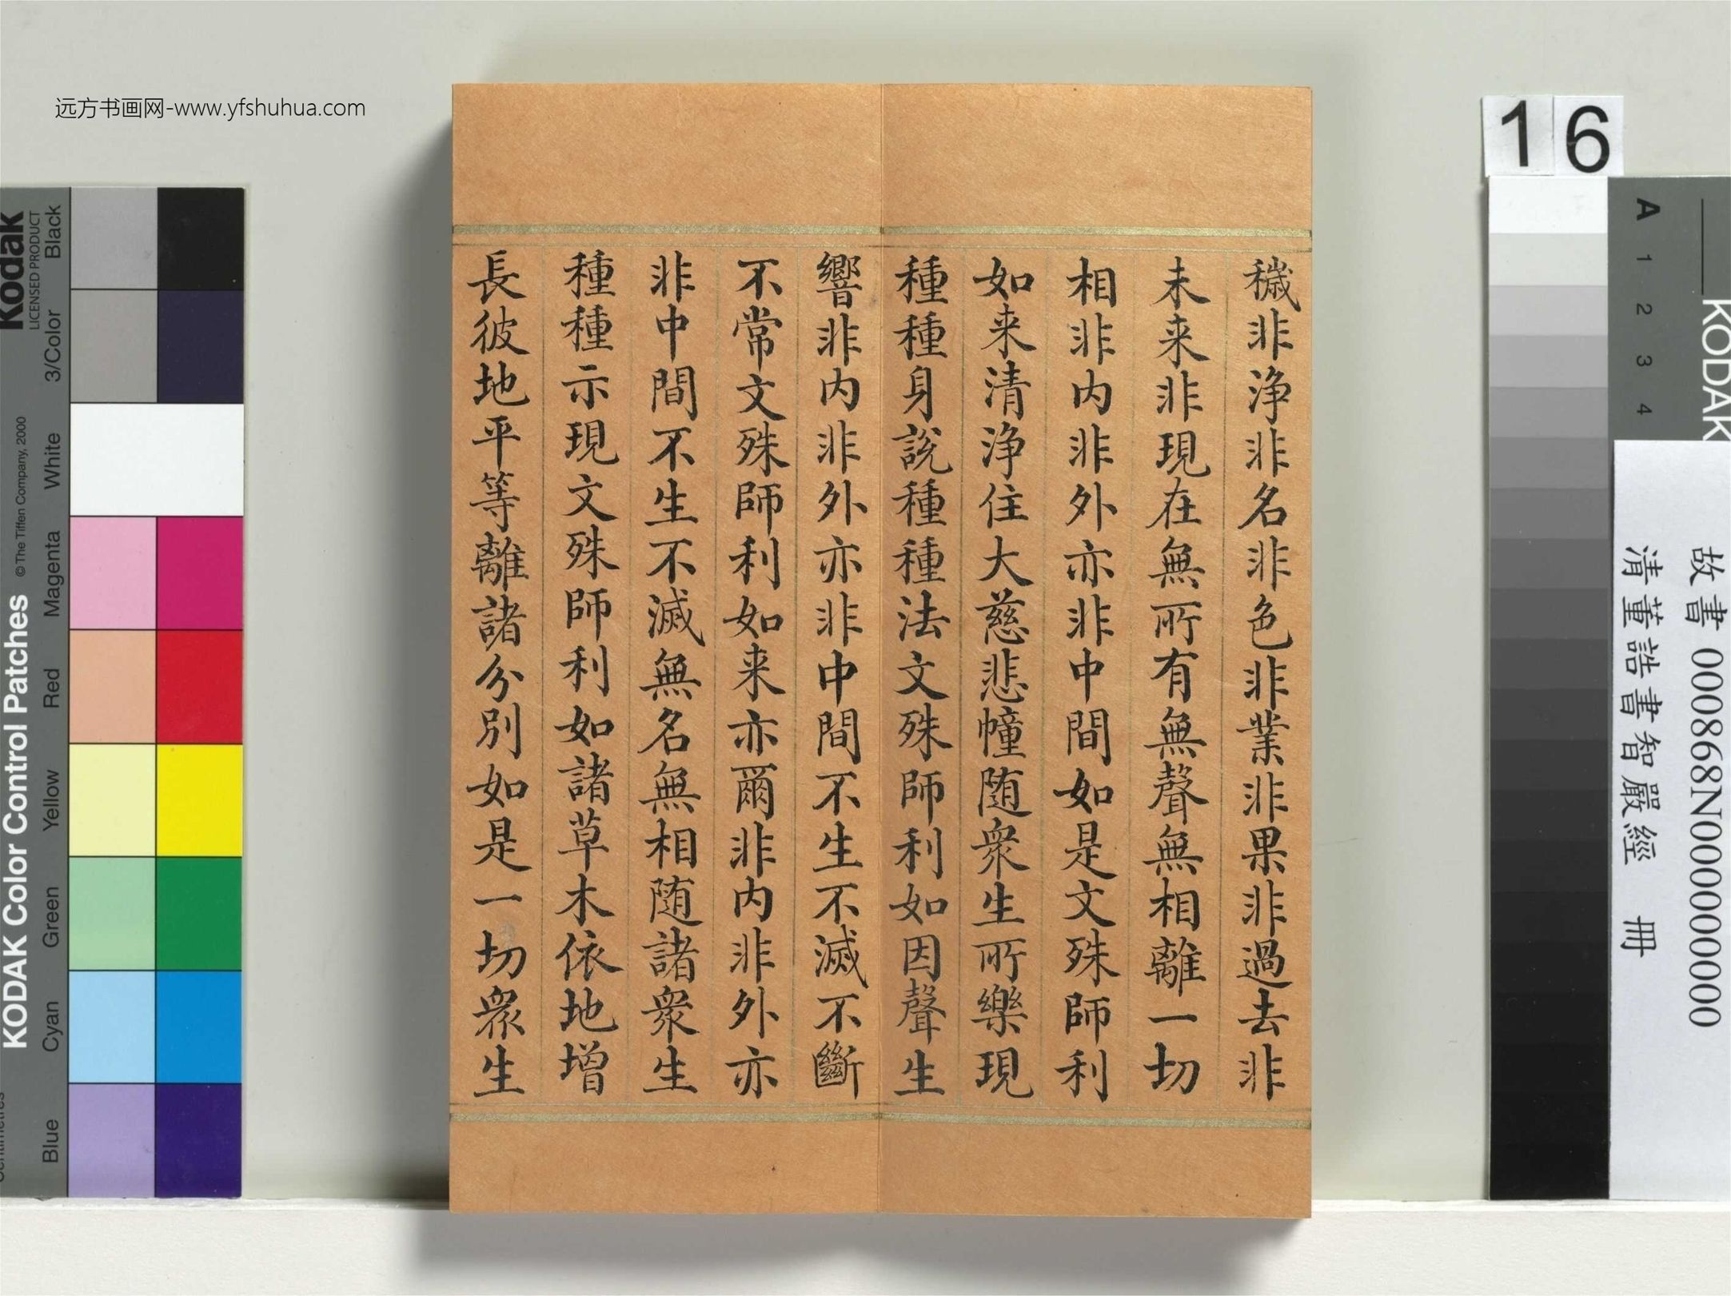 远方书画网-www.yfshuhua.com
穢非淨非名非色非業非果非過去非
未来非現在無所有無聲無相離一切
相非内非外亦非中間如是文殊師利
如来清淨住大慈悲幢随衆生所樂現
種種身說種種法文殊師利如因聲生
響非内非外亦非中間不生不滅不斷
不常文殊師利如来亦爾非内非外亦
非中間不生不滅無名無相随諸衆生
種種示現文殊師利如諸草木依地增
長彼地平等離諸分別如是一切衆生
16
故書 000868N000000000
清董誥書智嚴經 冊
KODAK
A 1 2 3 4
Kodak
LICENSED PRODUCT
KODAK Color Control Patches
©The Tiffen Company, 2000
Black
3/Color
White
Magenta
Red
Yellow
Green
Cyan
Blue